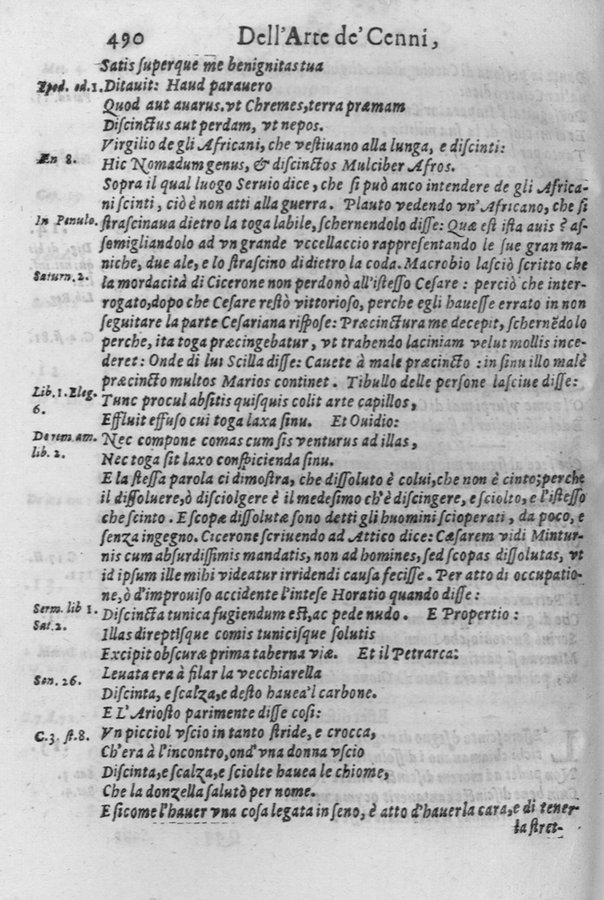 490 Dell'Arte de' Cenni,
Satis superque me benignitas tua
Epod. od.1. Ditauit: Haud parauero
Quod aut auarus. vt Chremes, terra præmam
Discinctus aut perdam, vt nepos.
Virgilio degli Africani, che vestiuano alla lunga, e discinti:
Æn 8. Hic Nomadum genus, & discinctos Mulciber Afros.
Sopra il qual luogo Seruio dice, che si può anco intendere de gli Africa-
ni scinti, ciò è non atti alla guerra. Plauto vedendo vn'Africano, che si
In Penulo. strascinaua dietro la toga labile, schernendolo disse: Quæ est ista auis? as-
somigliandolo ad vn grande vccellaccio rappresentando le sue gran ma-
niche, due ale, e lo strascino di dietro la coda. Macrobio lasciò scritto che
Saturn. 2. la mordacità di Cicerone non perdonò all'istesso Cesare: perciò che inter-
rogato, dopo che Cesare restò vittorioso, perche egli hauesse errato in non
seguitare la parte Cesariana rispose: Præcinctura me decepit, schernẽdolo
perche, ita toga præcingebatur, vt trahendo laciniam velut mollis ince-
deret: Onde di lui Scilla disse: Cauete à male præcincto: in sinu illo malè
præcincto multos Marios continet. Tibullo delle persone lasciue disse:
Lib. 1. Eleg. 6. Tunc procul absitis quisquis colit arte capillos,
Effluit effuso cui toga laxa sinu. Et Ouidio:
De rem. am. lib. 2. Nec compone comas cum sis venturus ad illas,
Nec toga sit laxo conspicienda sinu.
E la stessa parola ci dimostra, che dissoluto è colui, che non è cinto; perche
il dissoluere, ò disciolgere è il medesimo ch'è discingere, e sciolto, e l'istesso
che scinto. E scopæ dissolutæ sono detti gli huomini scioperati, da poco, e
senza ingegno. Cicerone scriuendo ad Attico dice: Cæsarem vidi Mintur-
nis cum absurdissimis mandatis, non ad homines, sed scopas dissolutas, vt
id ipsum ille mihi videatur irridendi causa fecisse. Per atto di occupatio-
ne, ò d'improuiso accidente l'intese Horatio quando disse:
Serm. lib 1. Sat. 2. Discincta tunica fugiendum est, ac pede nudo. E Propertio:
Illas direptisque comis tunicisque solutis
Excipit obscuræ prima taberna viæ. Et il Petrarca:
Son. 26. Leuata era à filar la vecchiarella
Discinta, e scalza, e desto hauea'l carbone.
E L'Ariosto parimente disse cosi:
C. 3. st. 8. Vn picciol vscio in tanto stride, e crocca,
Ch'era à l'incontro, ond'vna donna vscio
Discinta, e scalza, e sciolte hauea le chiome,
Che la donzella salutò per nome.
E sicome l'hauer vna cosa legata in seno, è atto d'hauerla cara, e di tener
la stret-